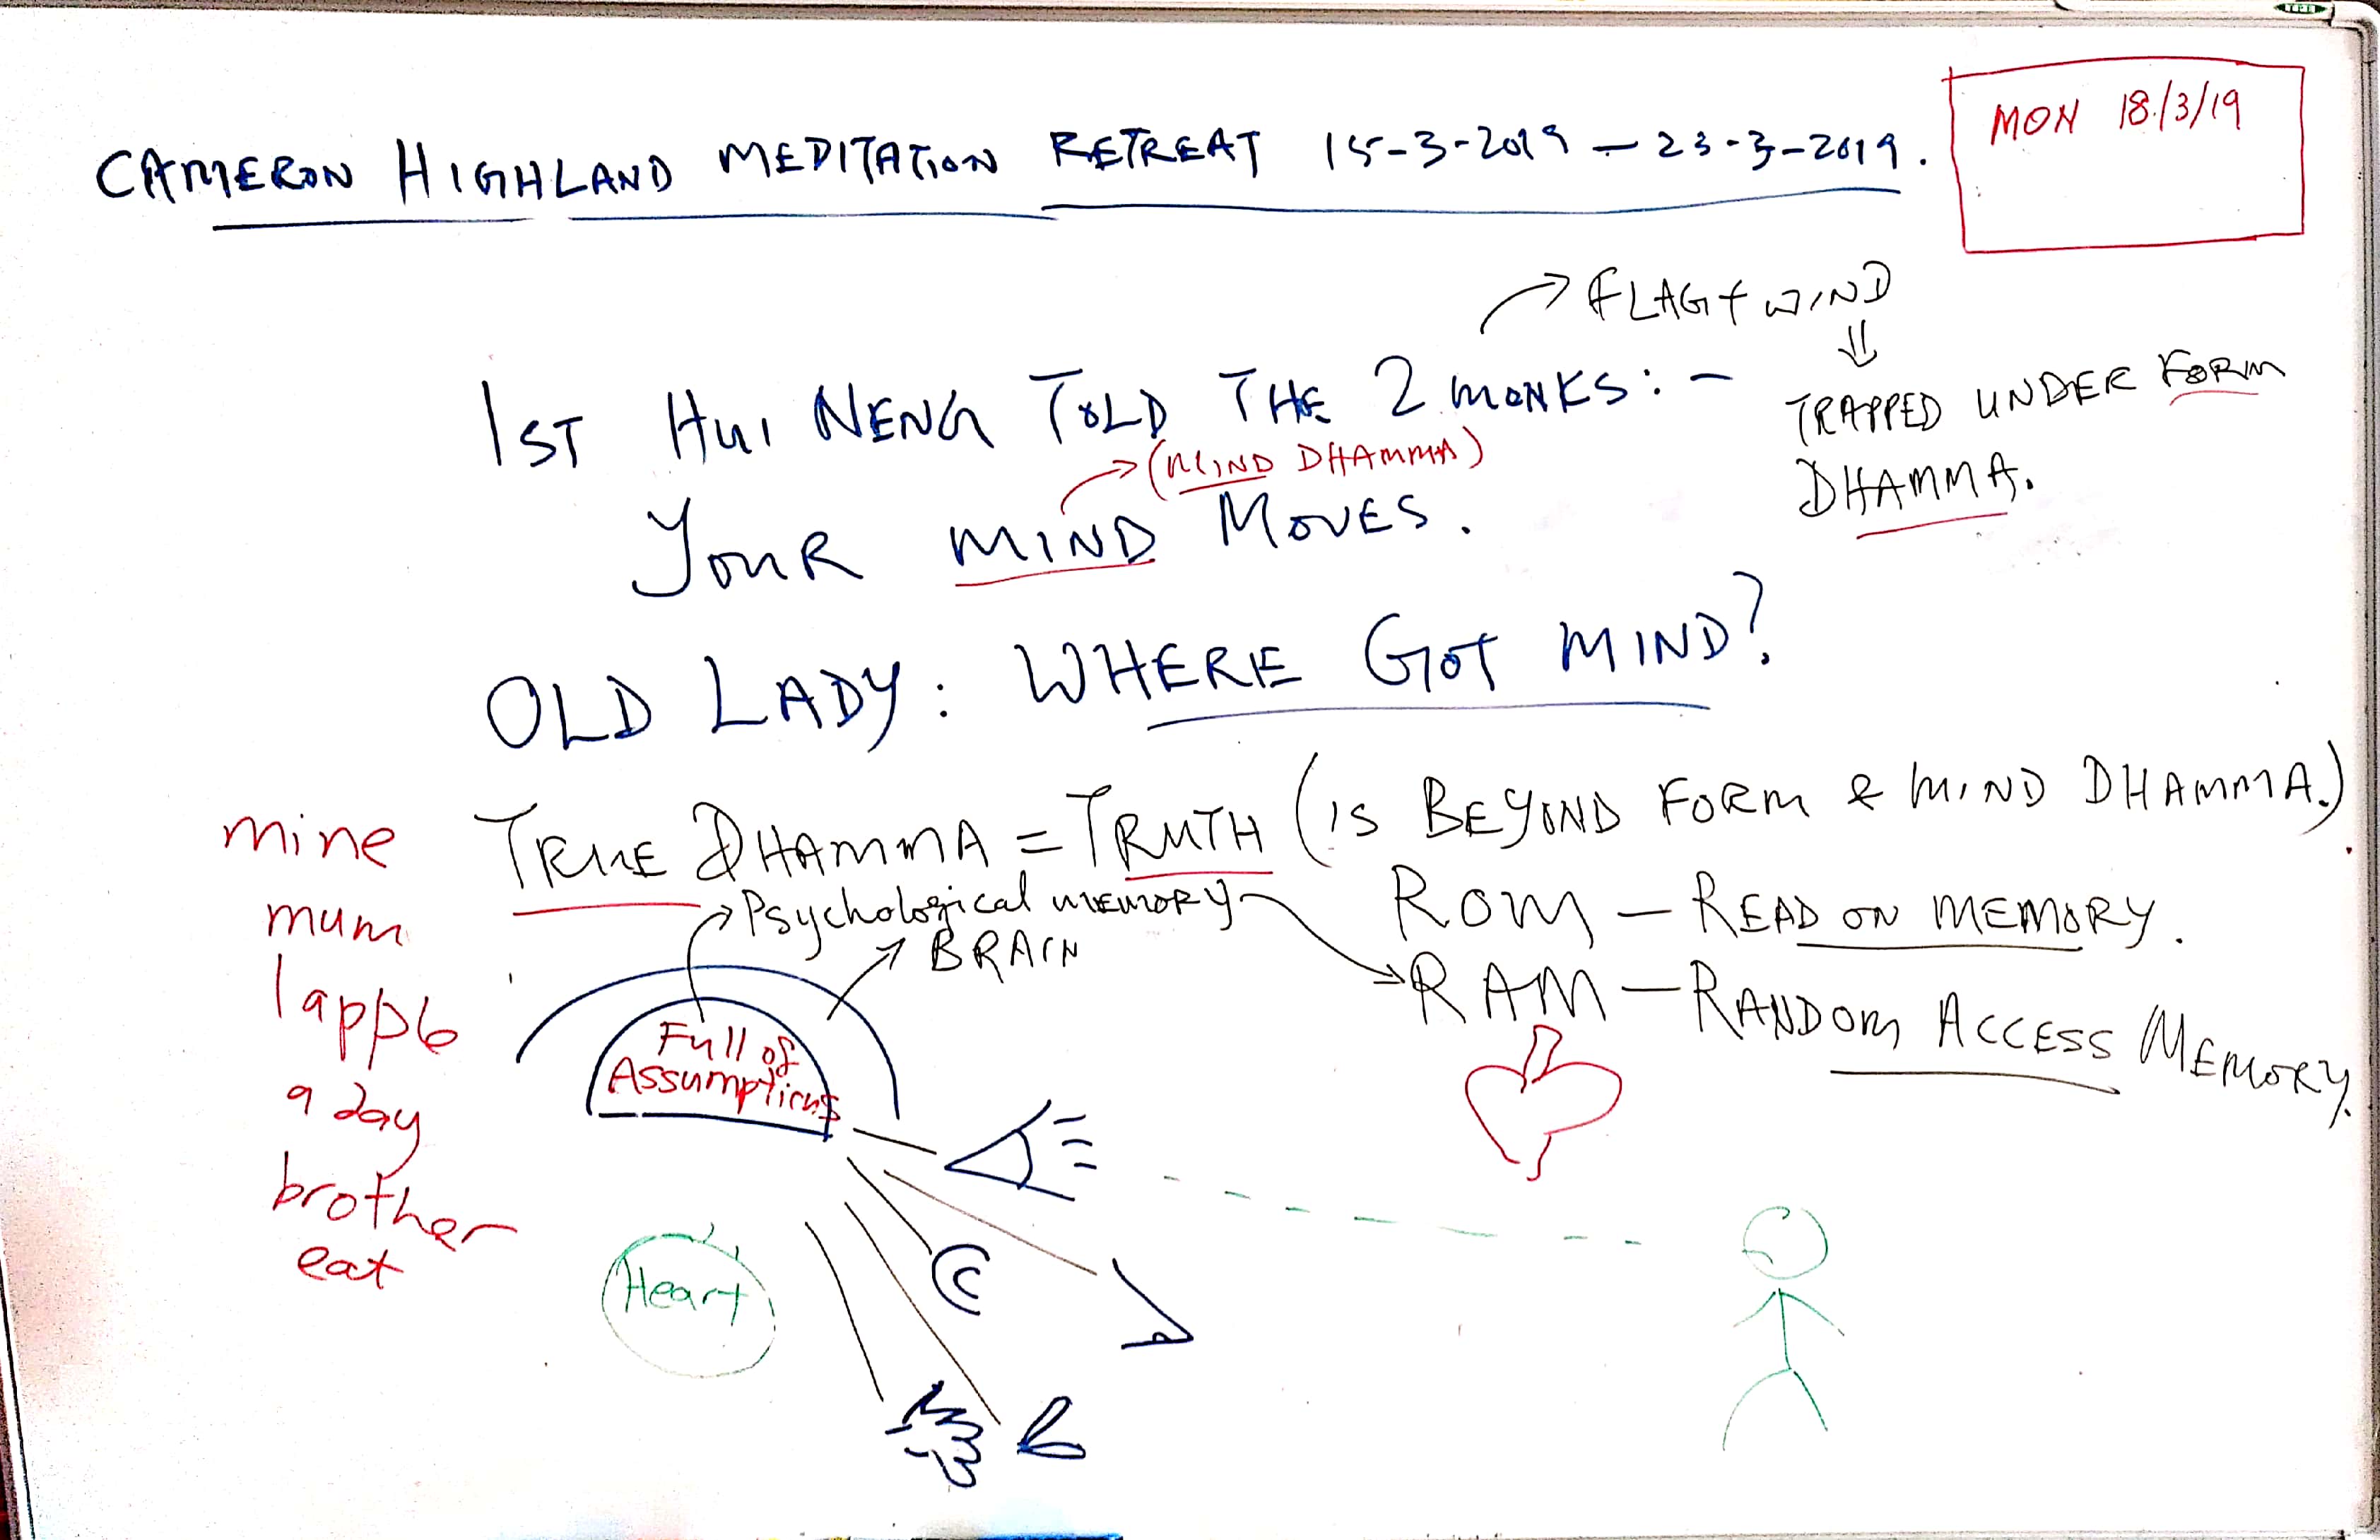 CAMERON HIGHLAND MEDITATION RETREAT 15-3-2019 – 23-3-2019.
MON 18/3/19
FLAG + WIND
1ST HUI NENG TOLD THE 2 MONKS: -
TRAPPED UNDER FORM
DHAMMA.
(MIND DHAMMA)
YOUR MIND MOVES.
OLD LADY: WHERE GOT MIND?
TRUE DHAMMA = TRUTH (IS BEYOND FORM & MIND DHAMMA.)
Psychological MEMORY
BRAIN
ROM – READ ON MEMORY.
RAM – RANDOM ACCESS MEMORY.
mine
mum
a day
brother
eat
Full of
Assumptions
Heart